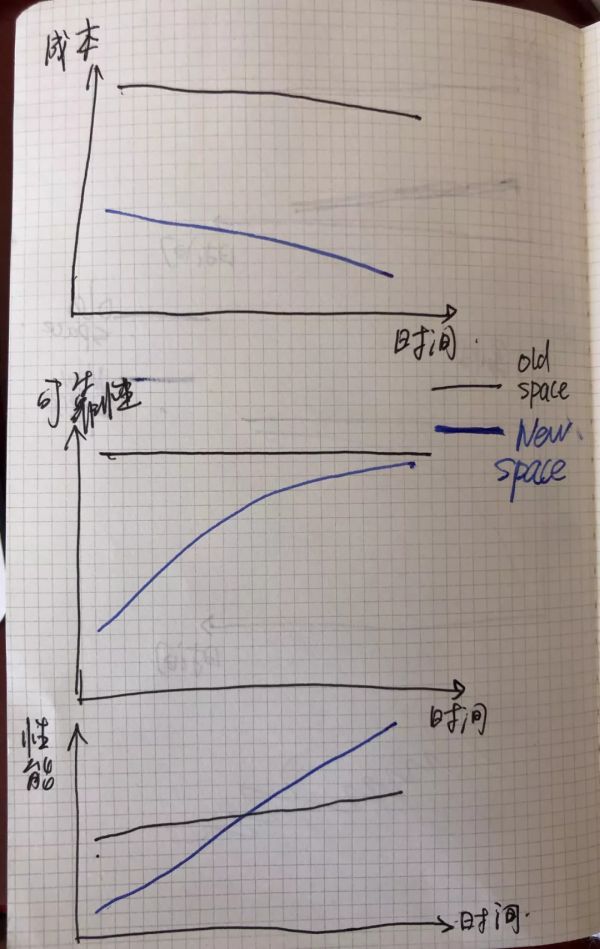 成本
时间
old
space
New
space
可靠性
时间
性
能
时间